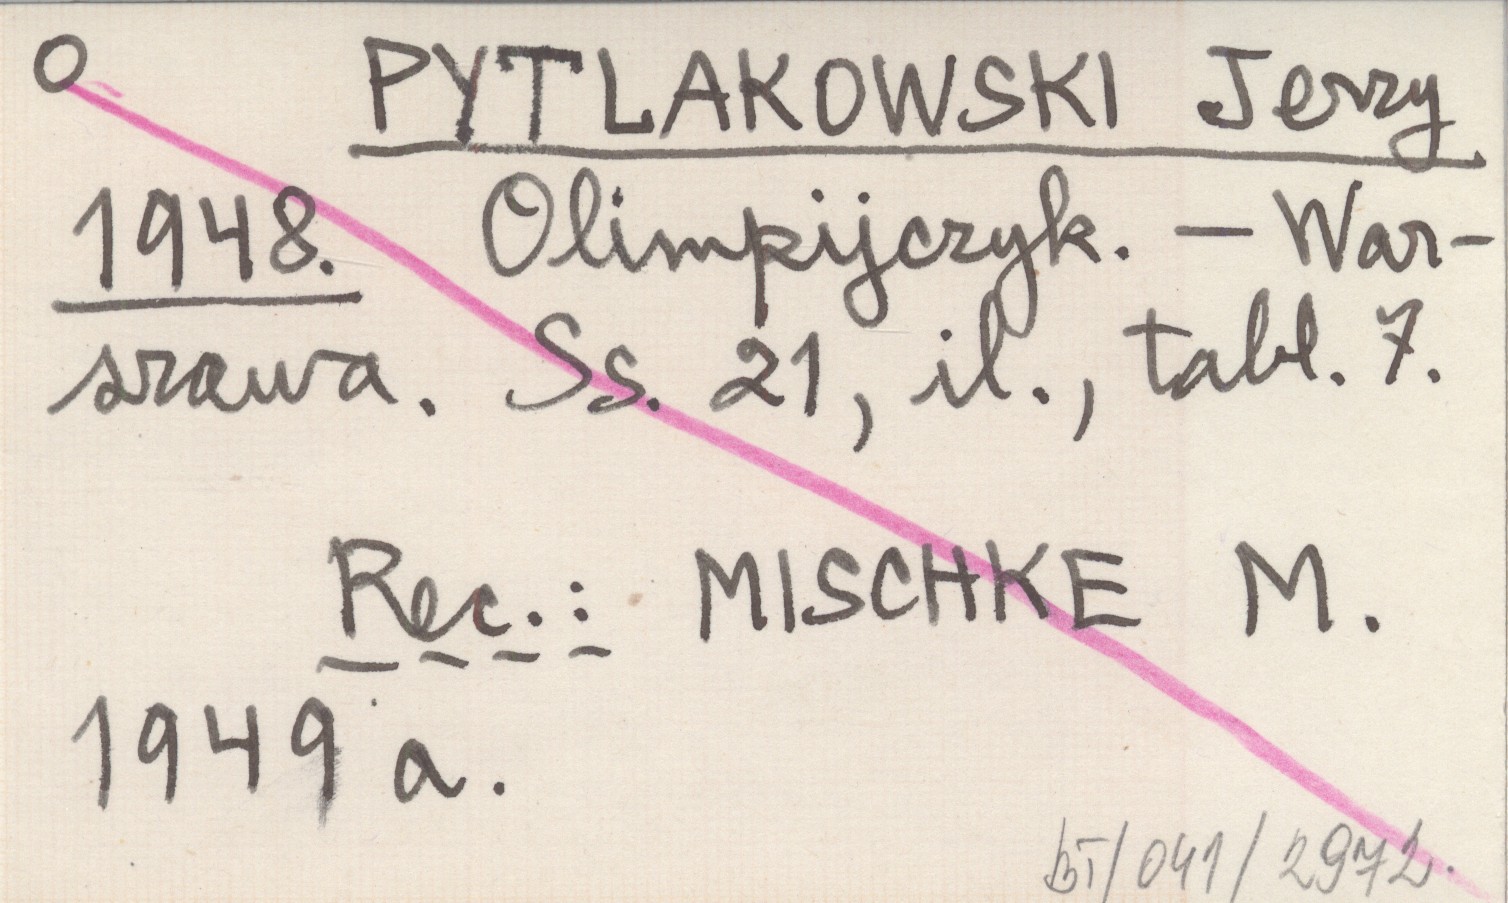 O PYTLAKOWSKI Jerzy
1948. Olimpijczyk. — War-
szawa. Ss. 21, il., tabl. 7.
Rec.: MISCHKE M.
1949 a.
BT/041/2972.